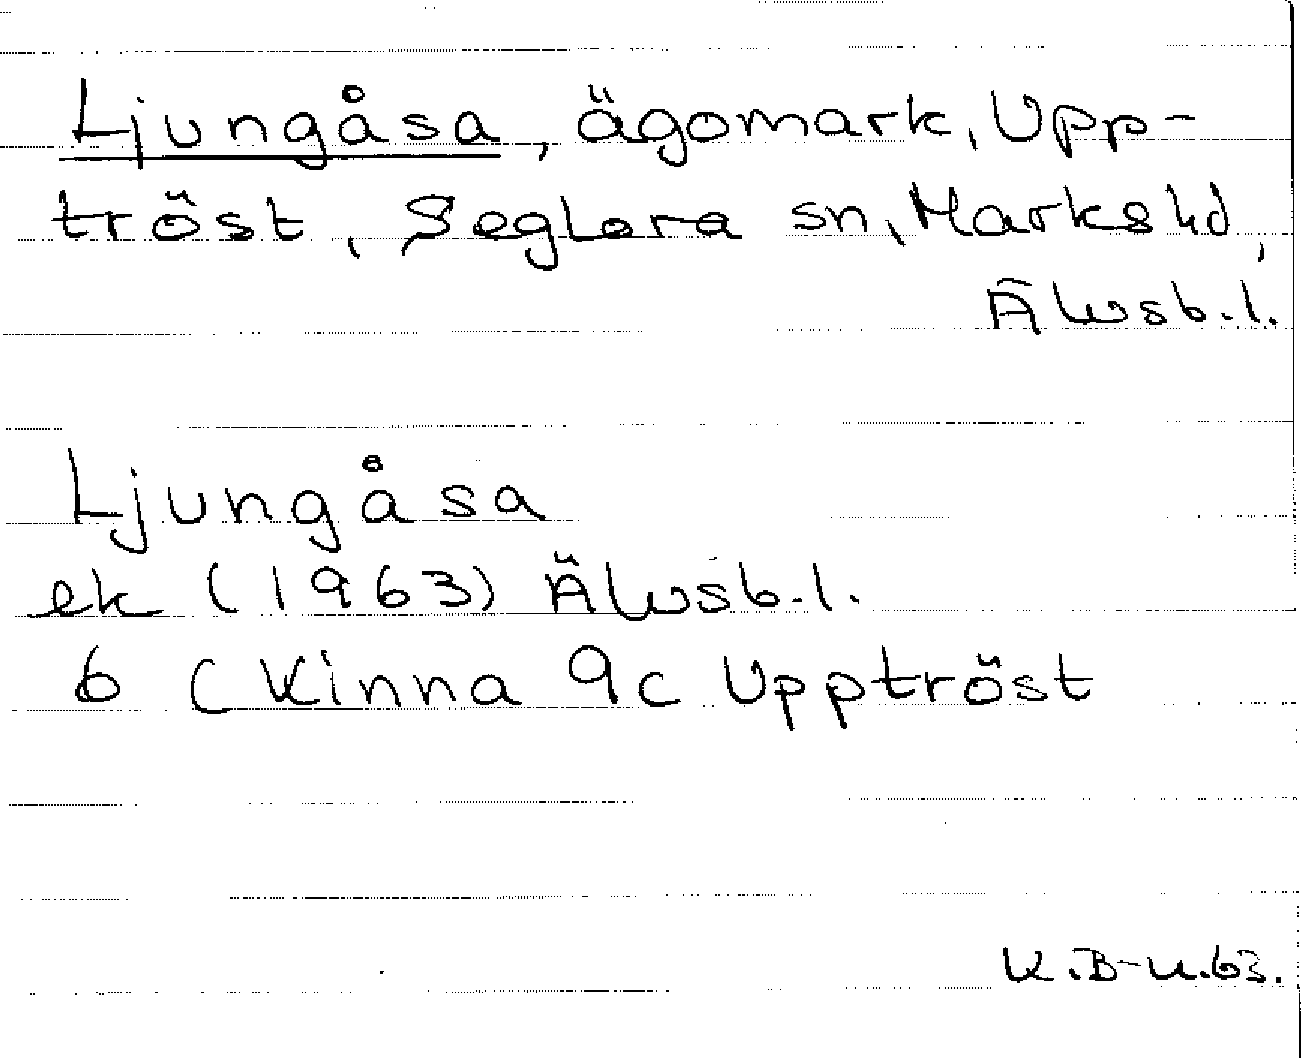 Ljungåsa, ägomark, Upp-
tröst, Seglora sn, Marks hd,
Älvsb.l.
Ljungåsa
ek (1963) Älvsb.l.
6 (Kinna 9c Upptröst
K.B-K.63.